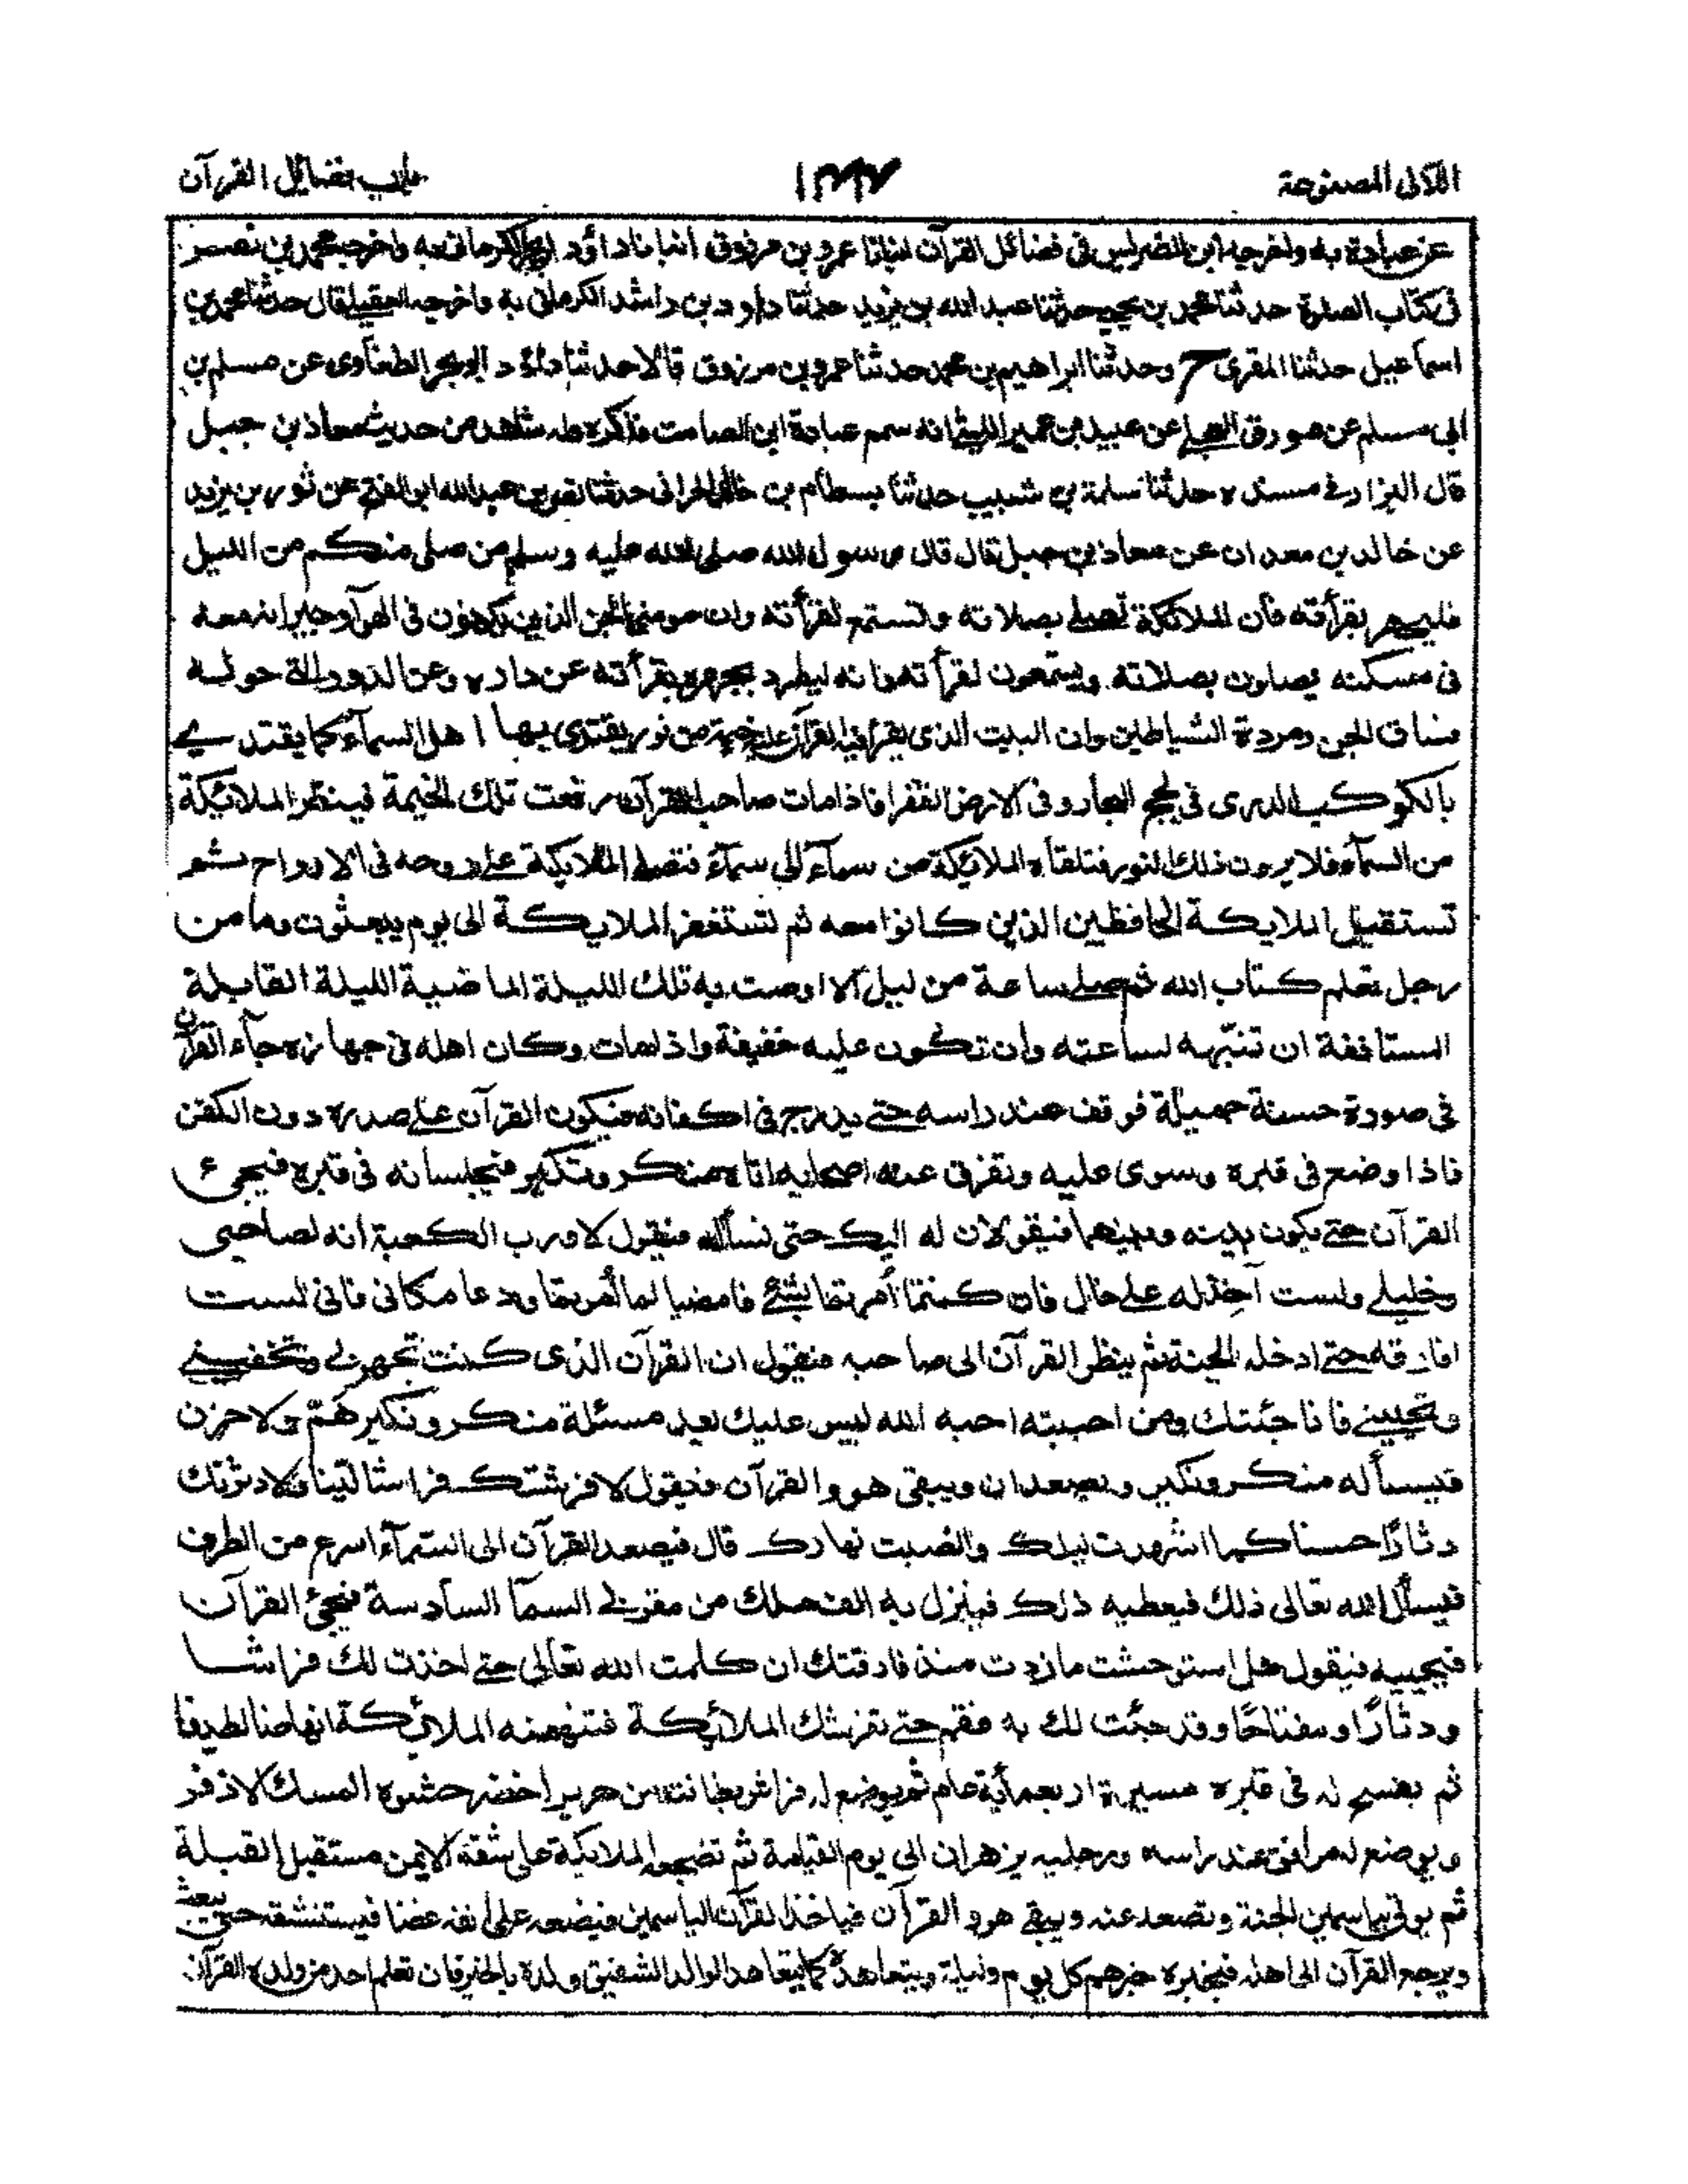 اللآلى المصنوعة
فضائل القرآن
عن عبادة به واخرجه ابن الضريس فى فضائل القرآن انبانا عمرو بن مرزوق انبانا داؤد ابو بحر الكرمانى به واخرجه محمد بن نصر
فى كتاب الصلوة حدثنا محمد بن يحيى حدثنا عبد الله بن يزيد حدثنا داود بن راشد الكرمانى به واخرجه العقيلے قال حدثنا محمد بن
اسماعيل حدثنا المقرى ح وحدثنا ابراهيم بن محمد حدثنا عمرو بن مرزوق قالا حدثنا داؤد ابو بحر الطفاوى عن مسلم بن
ابى مسلم عن مورق العجلے عن عبيد بن عمير الليثے انه سمع عبادة ابن الصامت فذكره له شاهد من حديث معاذ بن جبل
قال البزار فے مسنده حدثنا سلمة بن شبيب حدثنا بسطام بن خالد الحرانى حدثنا نصر بن عبد الله ابو الفتح عن ثور بن يزيد
عن خالد بن معدان عن معاذ بن جبل قال قال رسول الله صلى الله عليه وسلم من صلى منكم من الليل
فليجهر بقرأته فان الملائكة تصلے بصلاته وتستمع لقرأته وان مومنى الجن الذين يكونون فى الهوآ وجيرانه معه
فى مسكنه يصلون بصلاته ويستمعون لقرأته فانه ليطرد بجهره بقرأته عن داره وعن الدور التے حوله
فساق الجن ومردة الشياطين وان البيت الذى يقرأ فيه القرآن عليه خيمة من نور يقتدى بها اهل السمآء كما يقتدے
بالكوكب الدرى فى لجج البحار وفى الارض القفر فاذا مات صاحب القرآن رفعت تلك الخيمة فينظر الملائيكة
من السمآء فلا يرون ذلك النور فتلقاه الملائيكة من سمآء الى سمآء فتصلے الملايكة علے روحه فى الارواح ثم
تستقبل الملايكة الحافظين الذين كانوا معه ثم تستغفر الملايكة الى يوم يبعثون وما من
رجل تعلم كتاب الله ثم صلے ساعة من ليل الا اوصت به تلك الليلة الماضية الليلة القابلة
المستانفة ان تنبّهه لساعته وان تكون عليه خفيفة واذا مات وكان اهله فى جهازه جآء القرآن
فى صورة حسنة جميلة فوقف عند راسه حتے يدرج فى اكفانه فيكون القرآن علے صدره دون الكفن
فاذا وضع فى قبره وسوى عليه وتفرق عنه اصحابه اتاه منكر ونكير فيجلسانه فى قبره فيجىء
القرآن حتے يكون بينه وبينهما فيقولان له اليك حتى نسأله فيقول لا ورب الكعبة انه لصاحبى
وخليلے ولست اخذله علے حال فان كنتما أمرتما بشئے فامضيا لما أمرتما ودعا مكانى فانى لست
افارقه حتے ادخله الجنة ثم ينظر القرآن الى صاحبه فيقول ان القرآن الذى كنت تجهر بے وتخفينے
وتحبنے فانا حبيبك ومن احببته احبه الله ليس عليك بعد مسئلة منكر ونكير همّ ولا حزن
فيسأله منكر ونكير ويصعدان ويبقى هو والقرآن فيقول لافرشنك فراشا ليّنا ولادثرنك
دثارًا حسنا كما اسهرت ليلك وانصبت نهارك قال فيصعد القرآن الى السّمآء اسرع من الطرف
فيسأل الله تعالى ذلك فيعطيه ذلك فينزل به الف ملك من مقربے السمآ السادسة فيجئ القرآن
فيجيبه فيقول هل استوحشت ما زدت منذ فارقتك ان كلمت الله تعالى حتے اخذت لك فراشا
ودثارًا ومفتاحًا وقد جئت لك به فقم حتے تفرشك الملائيكة فتنهضه الملائكة انهاضا لطيفا
ثم يفسح له فى قبره مسيرة اربعمأية عام ثم يوضع له فراش بطانته من حرير اخضر حشوه المسك الاذفر
ويوضع له مرافق عند راسه ورجليه يزهران الى يوم القيامة ثم تضجعه الملايكة على شقه الايمن مستقبل القبلة
ثم يوتى بياسمين الجنة وتصعد عنه ويبقے هو والقرآن فياخذ القرآن الياسمين فيضعه على انفه غضا فيستنشقه حتى يبعث
ويرجع القرآن الى اهله فيخبره خبرهم كل يوم وليلة ويتعاهده كما يتعاهد الوالد الشفيق ولده بالخير فان تعلم احد من ولده القرآن